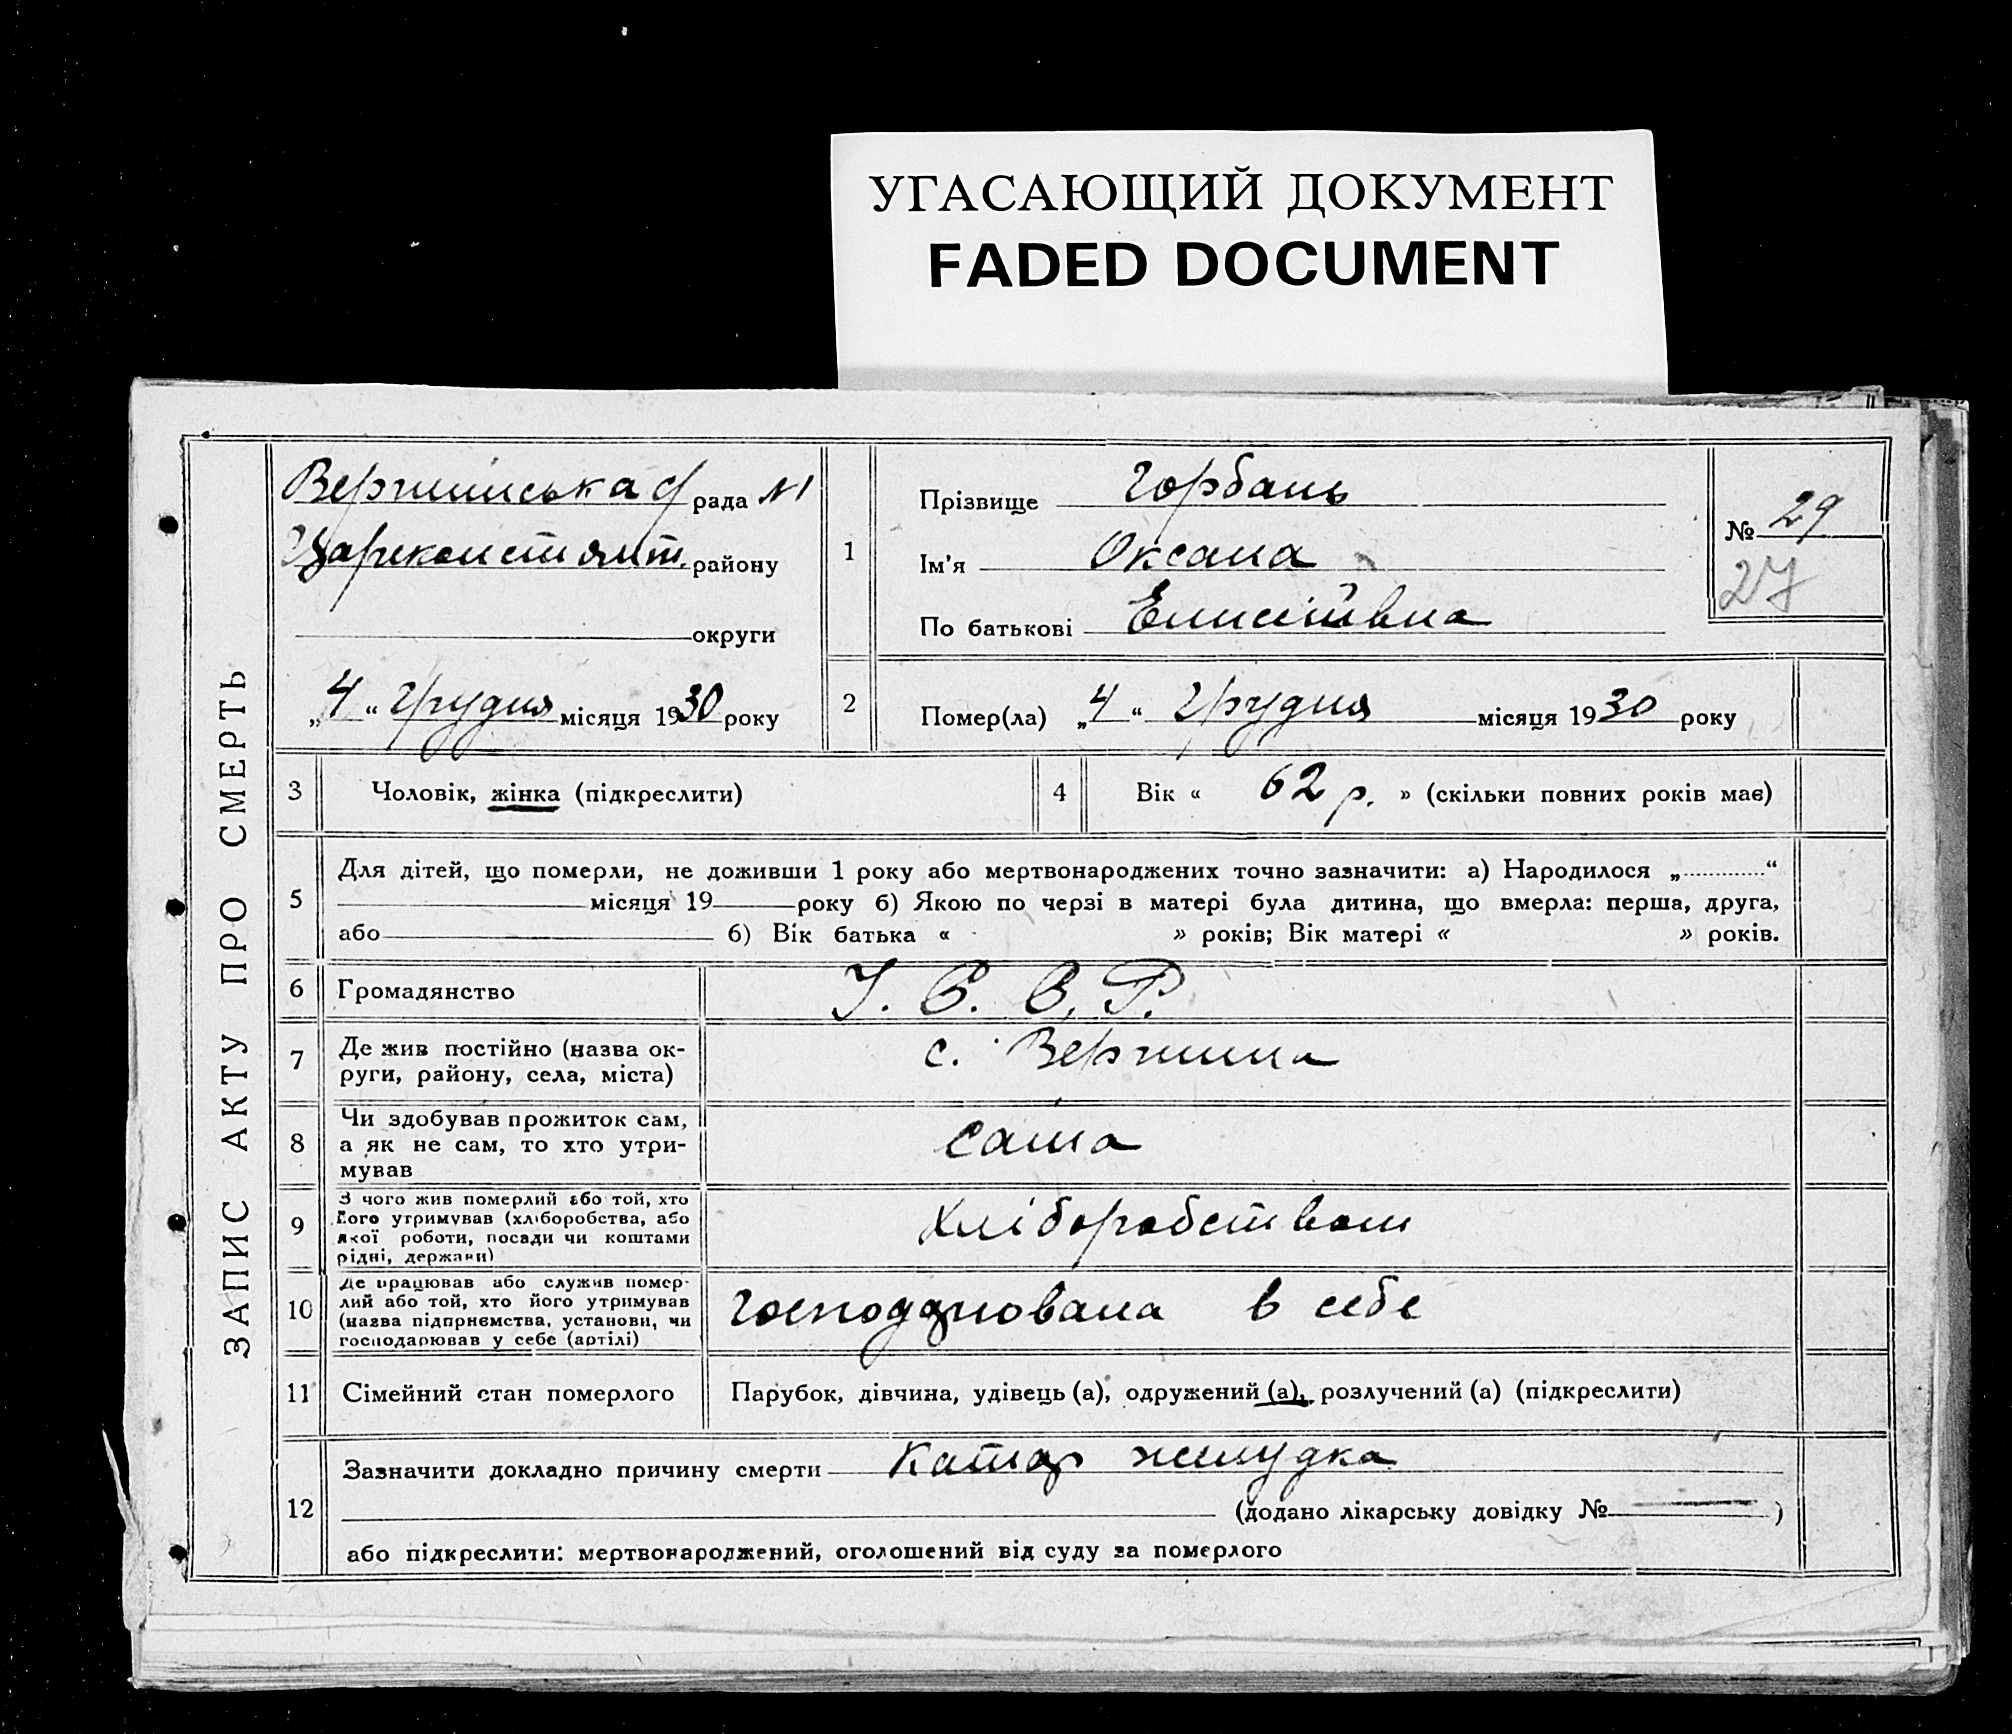 УГАСАЮЩИЙ ДОКУМЕНТ
FADED DOCUMENT
ЗАПИС АКТУ ПРО СМЕРТЬ
Вершинська с/рада №1
Цареконстянт. району
округи
„4“ грудня місяця 1930 року
1
Прізвище Горбань
Ім'я Оксана
По батькові Елисеївна
№ 29
27
2
Помер(ла) „4“ грудня місяця 1930 року
3 Чоловік, жінка (підкреслити)
4 Вік « 62 р. » (скільки повних років має)
5
Для дітей, що померли, не доживши 1 року або мертвонароджених точно зазначити: а) Народилося „ “
місяця 19 року б) Якою по черзі в матері була дитина, що вмерла: перша, друга,
або б) Вік батька « » років; Вік матері « » років.
6 Громадянство У. С. С. Р.
7
Де жив постійно (назва ок-
руги, району, села, міста)
с. Вершина
8
Чи здобував прожиток сам,
а як не сам, то хто утри-
мував
сама
9
З чого жив померлий або той, хто
його утримував (хліборобства, або
якої роботи, посади чи коштами
рідні, держави)
Хліборобством
10
Де працював або служив помер-
лий або той, хто його утримував
(назва підприємства, установи, чи
господарював у себе (артілі)
господарювала в себе
11 Сімейний стан померлого Парубок, дівчина, удівець (а), одружений (а), розлучений (а) (підкреслити)
12
Зазначити докладно причину смерти Катар желудка
(додано лікарську довідку № )
або підкреслити: мертвонароджений, оголошений від суду за померлого